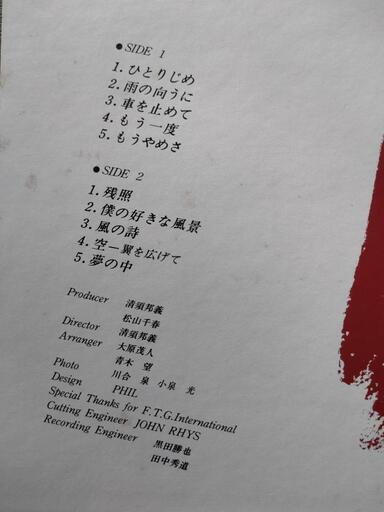 ●SIDE 1
1. ひとりじめ
2. 雨の向うに
3. 車を止めて
4. もう一度
5. もうやめさ
●SIDE 2
1. 残照
2. 僕の好きな風景
3. 風の詩
4. 空―翼を広げて
5. 夢の中
Producer 清須邦義
松山千春
Director 清須邦義
Arranger 大原茂人
青木 望
Photo 川合 泉 小泉 光
Design PHIL
Special Thanks for F.T.G.International
Cutting Engineer JOHN RHYS
Recording Engineer 黒田勝也
田中秀道